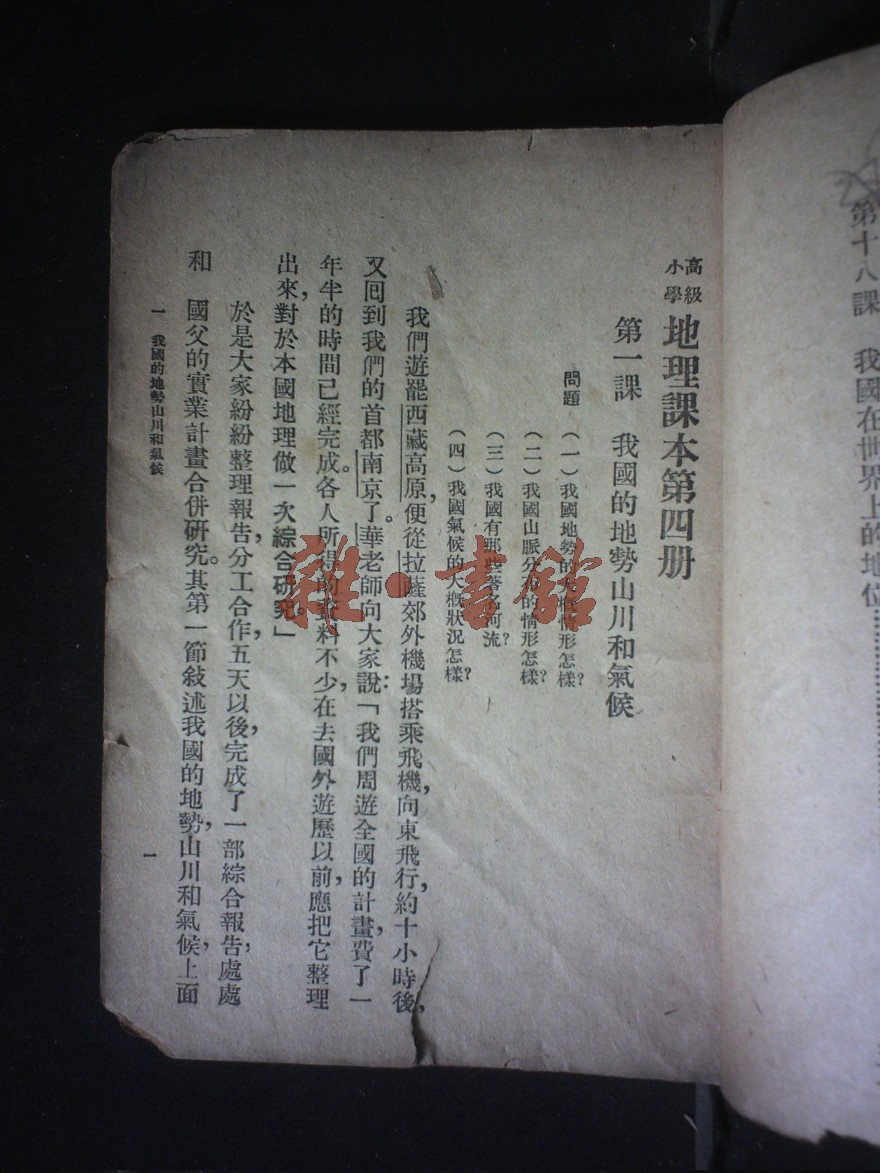 第十八課　我國在世界上的地位…………
高級小學 地理課本第四册
第一課　我國的地勢山川和氣候
問題　（一）我國地勢的大概情形怎樣？
（二）我國山脈分布的情形怎樣？
（三）我國有那些著名河流？
（四）我國氣候的大概狀況怎樣？
我們遊罷西藏高原，便從拉薩郊外機場搭乘飛機，向東飛行，約十小時後，
又囘到我們的首都南京了。華老師向大家說：「我們周遊全國的計畫，費了一
年半的時間已經完成。各人所得的資料不少，在去國外遊歷以前，應把它整理
出來，對於本國地理做一次綜合研究。」
於是大家紛紛整理報告，分工合作，五天以後，完成了一部綜合報告，處處
和　國父的實業計畫合併研究。其第一節敍述我國的地勢，山川和氣候，上面
一　我國的地勢山川和氣候
一
雜·書館